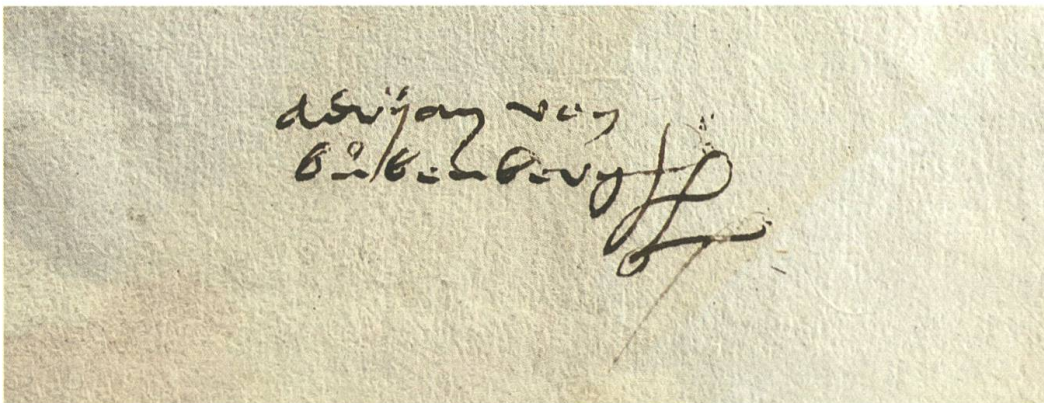 adrÿan von
bůbenberg